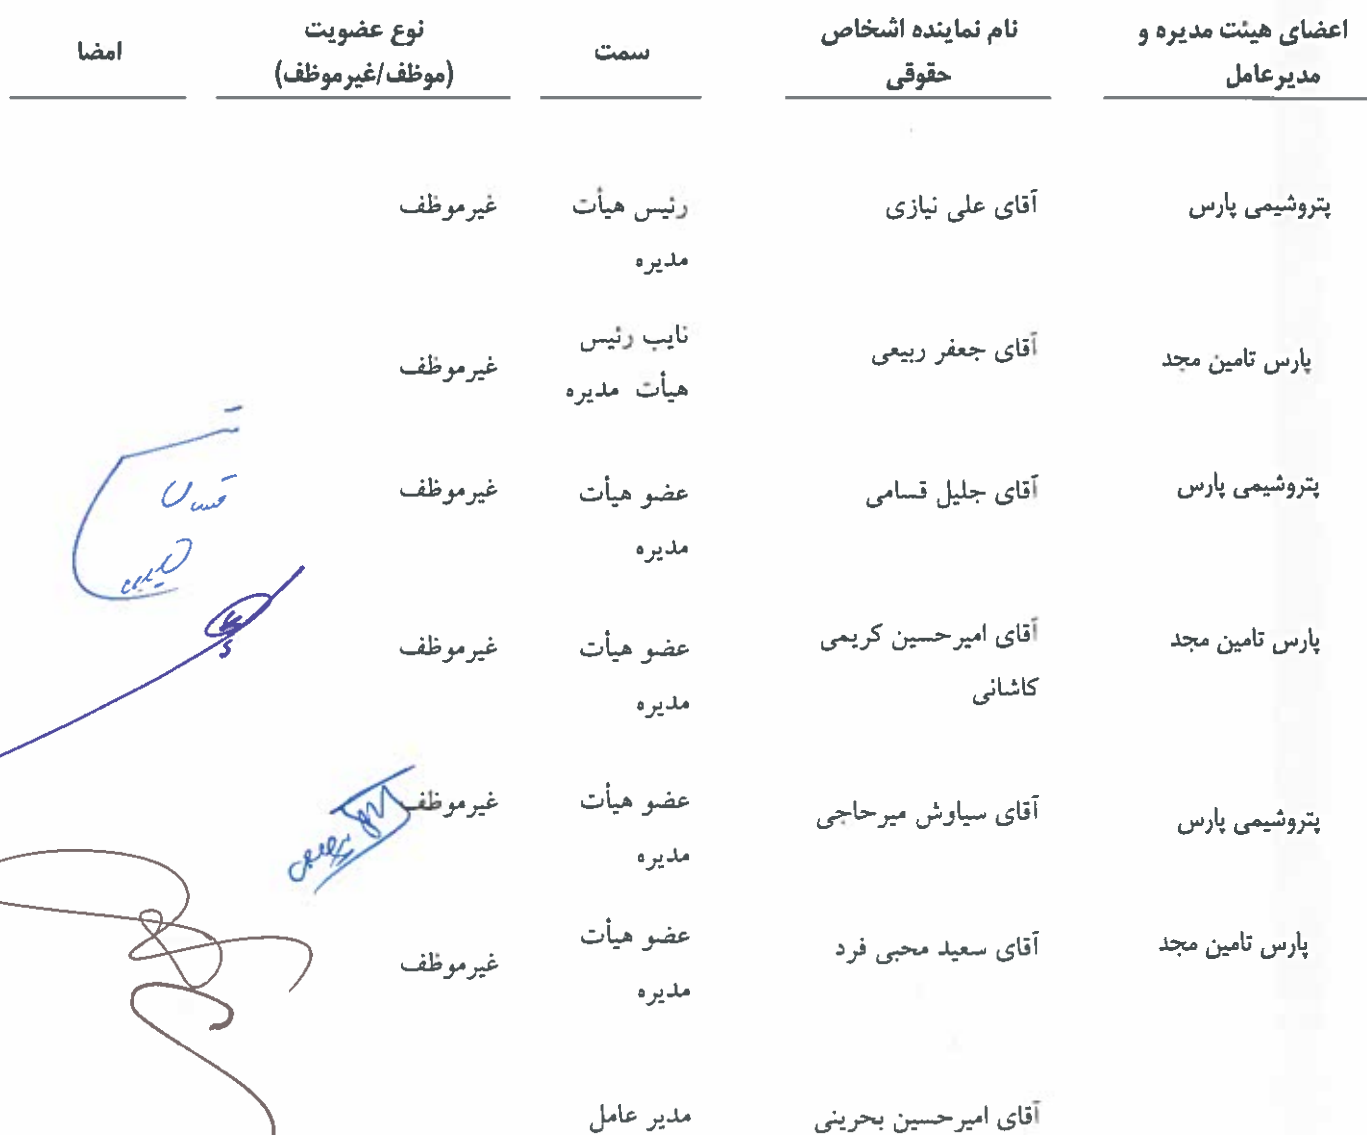 اعضای هیئت مدیره و
مدیرعامل
نام نماینده اشخاص
حقوقی
سمت
نوع عضویت
(موظف/غیرموظف)
امضا
پتروشیمی پارس
آقای علی نیازی
رئیس هیأت
مدیره
غیرموظف
پارس تامین مجد
آقای جعفر ربیعی
نایب رئیس
هیأت مدیره
غیرموظف
پتروشیمی پارس
آقای جلیل قسامی
عضو هیأت
مدیره
غیرموظف
پارس تامین مجد
آقای امیرحسین کریمی
کاشانی
عضو هیأت
مدیره
غیرموظف
پتروشیمی پارس
آقای سیاوش میرحاجی
عضو هیأت
مدیره
غیرموظف
پارس تامین مجد
آقای سعید محبی فرد
عضو هیأت
مدیره
غیرموظف
آقای امیرحسین بحرینی
مدیر عامل